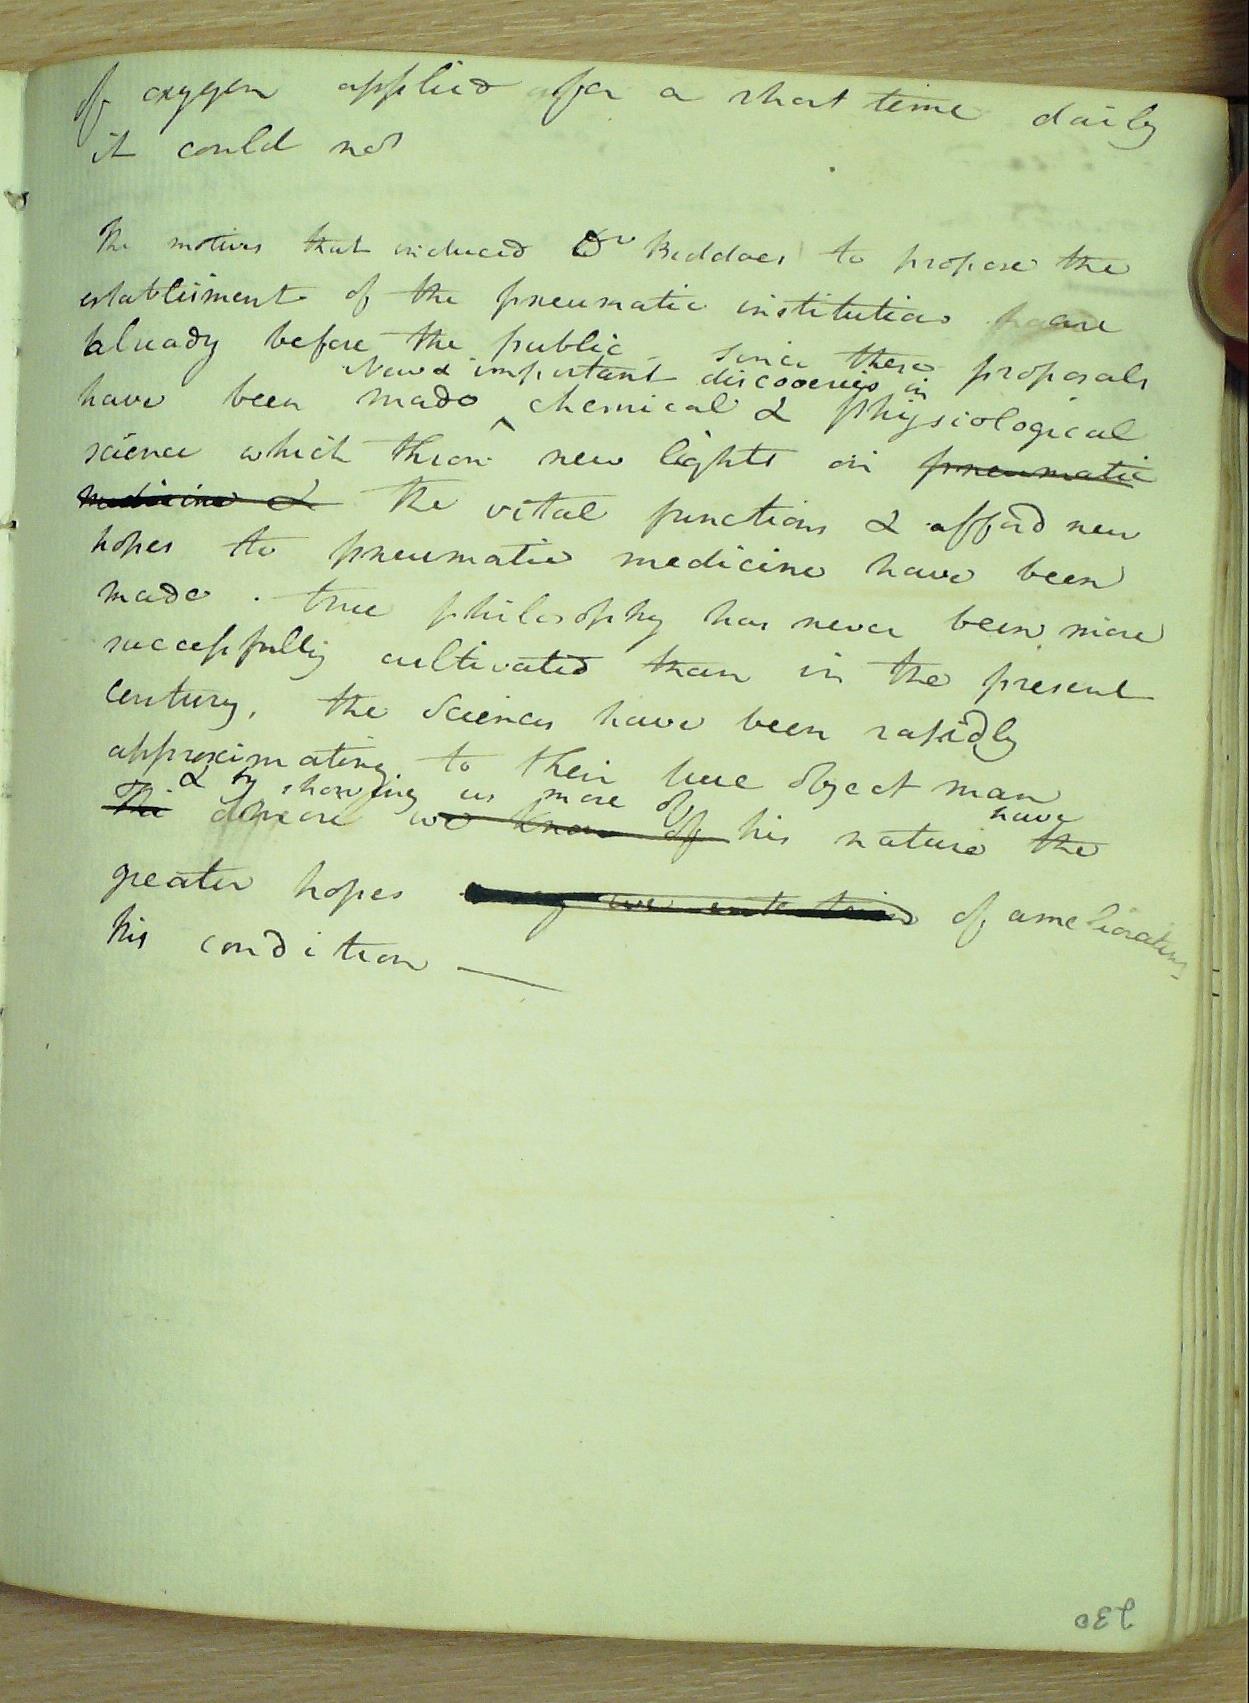 of oxygen applied for a short time daily
it could not
The motives that induced Dr Beddoes to propose the
establisment of the pneumatic institution are
already before the public since these proposals
New & important discoveries in
have been made ^ chemical & physiological
science which throw new lights on pneumatic
medicine & the vital functions & afford new
hopes to pneumatic medicine have been
made . true philosophy has never been more
successfully cultivated than in the present
century. the Sciences have been rapidly
approximating to their true object man
& by showing us more of have
The we know of his nature the
greater hopes we entertain of ameliorating
his condition —
130